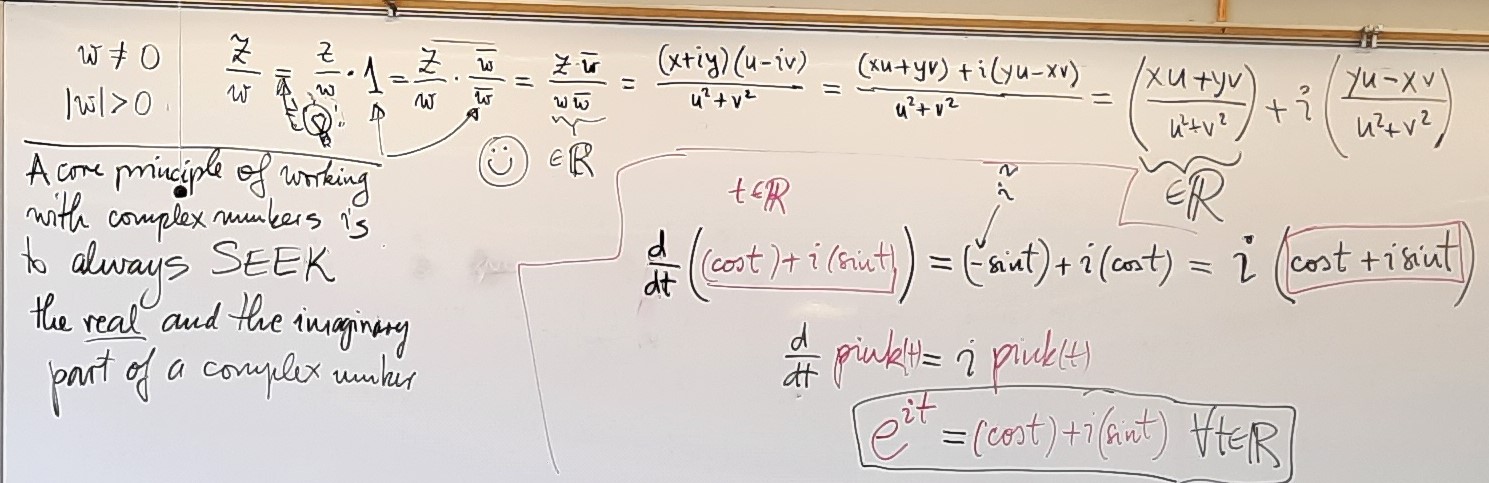 w ≠ 0
|w| > 0
z/w = z/w · 1 = z/w · w̅/w̅ = z·w̅/ww̅ = (x+iy)(u-iv)/u²+v² = (xu+yv)+i(yu-xv)/u²+v² = (xu+yv/u²+v²) + i(yu-xv/u²+v²)
∈ℝ
∈ℝ
A core principle of working
with complex numbers is
to always SEEK
the real and the imaginary
part of a complex number
t∈ℝ
i²
d/dt((cost)+i(sint)) = (-sint)+i(cost) = i(cost+isint)
d/dt pink(t) = i pink(t)
e^{it} = (cost)+i(sint) ∀t∈ℝ